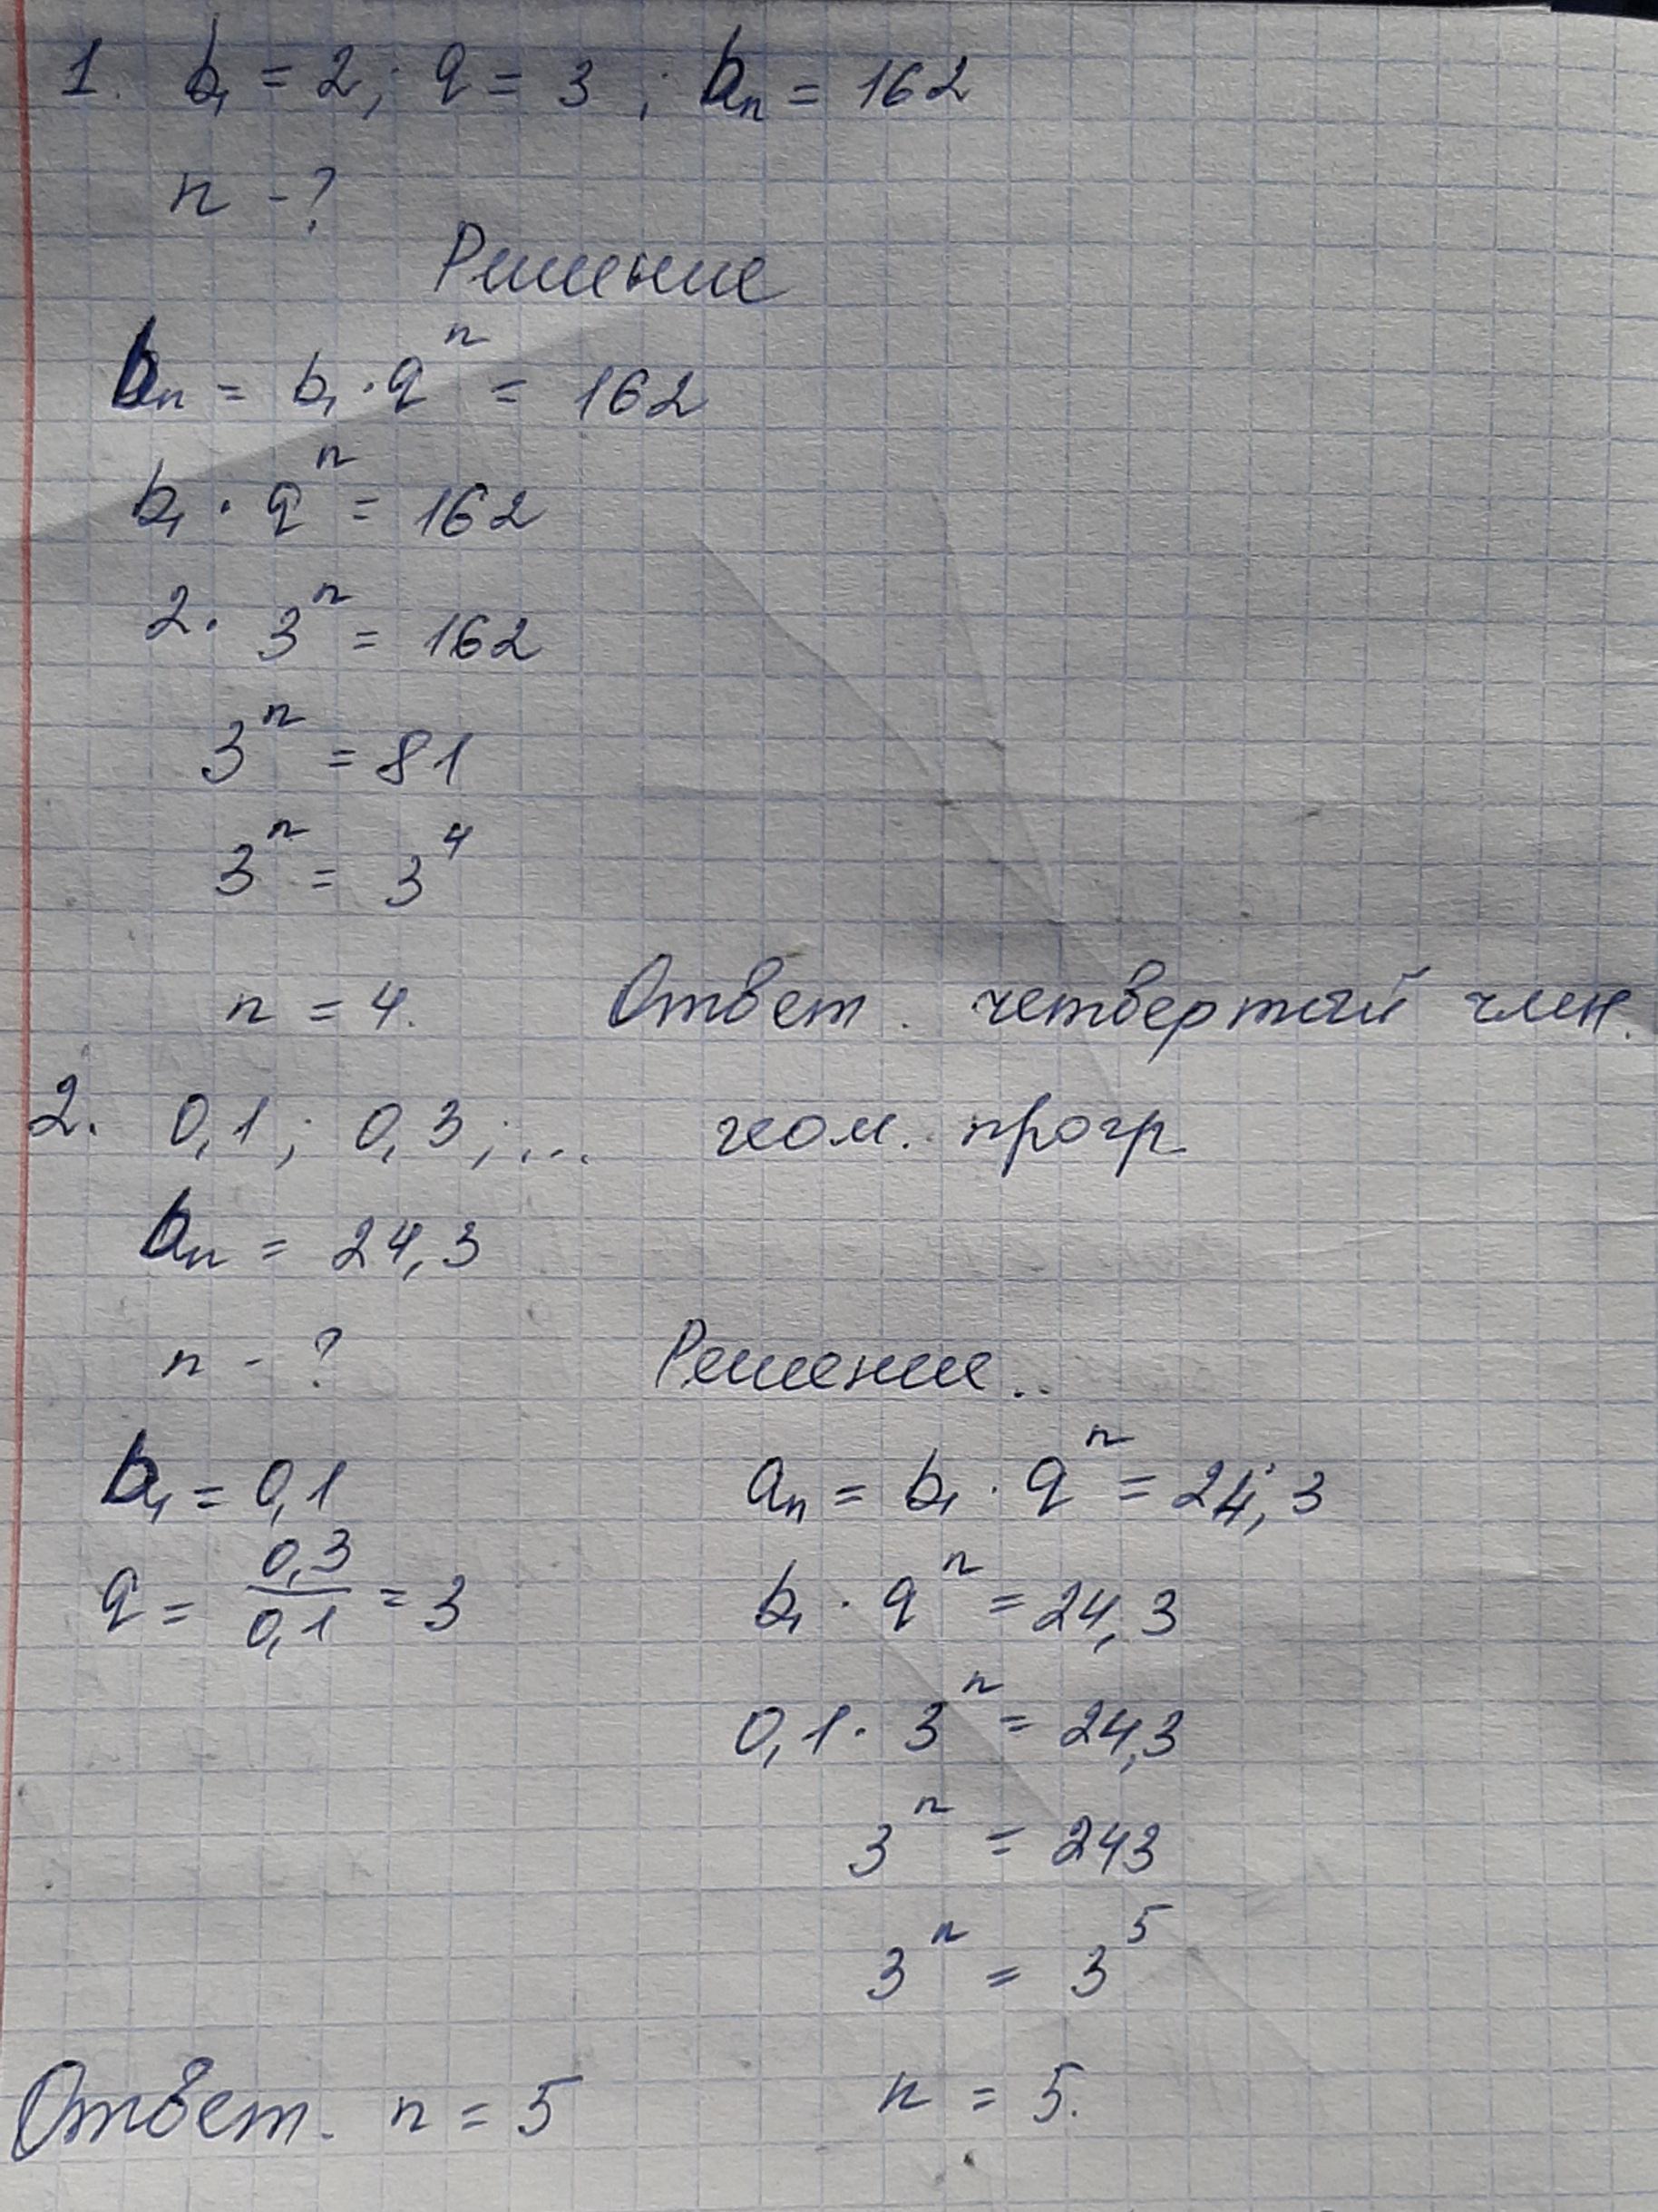 1. b₁ = 2; q = 3; bₙ = 162
n - ?
Решение
bₙ = b₁ · qⁿ = 162
b₁ · qⁿ = 162
2 · 3ⁿ = 162
3ⁿ = 81
3ⁿ = 3⁴
n = 4. Ответ. четвертый член.
2. 0,1; 0,3; ... геом. прогр.
bₙ = 24,3
n - ?
Решение..
b₁ = 0,1
q = 0,3/0,1 = 3
aₙ = b₁ · qⁿ = 24,3
b₁ · qⁿ = 24,3
0,1 · 3ⁿ = 24,3
3ⁿ = 243
3ⁿ = 3⁵
n = 5.
Ответ. n = 5